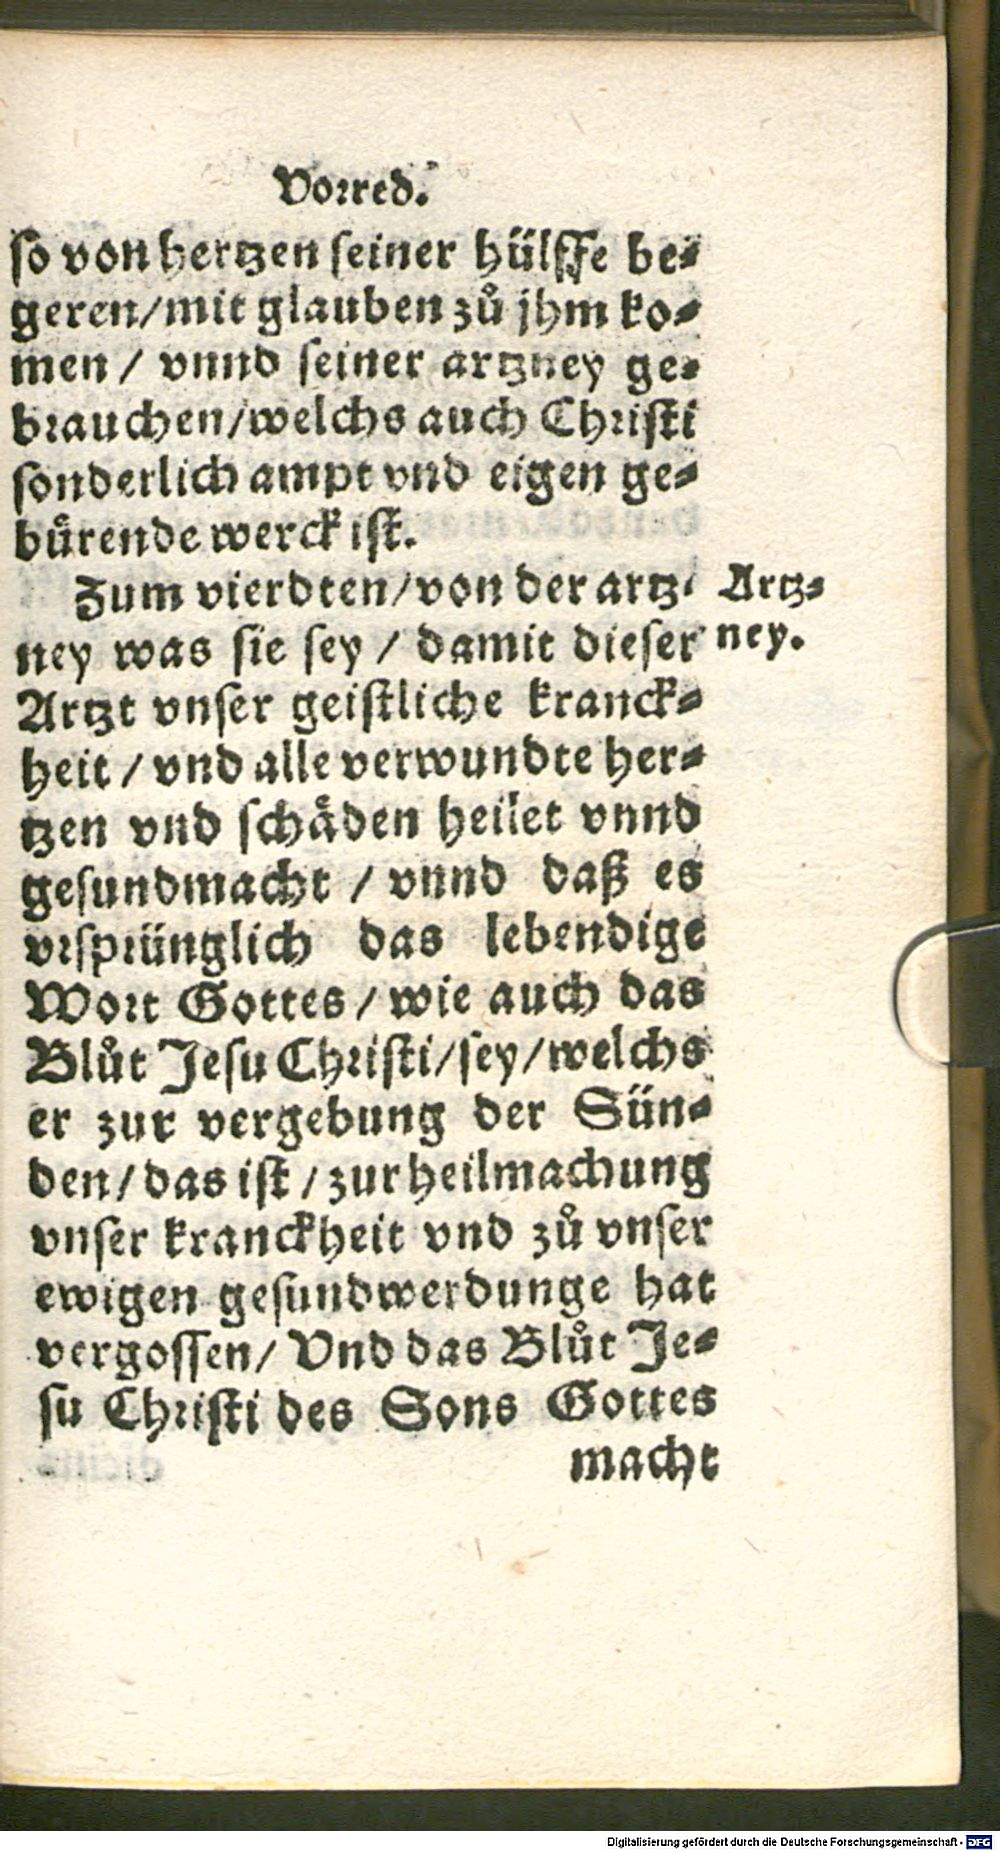 Vorred.
so von hertzen seiner hülffe be⸗
geren/mit glauben zů jhm ko⸗
men / vnnd seiner artzney ge⸗
brauchen/welchs auch Christi
sonderlich ampt vnd eigen ge⸗
bůrende werck ist.
Zum vierdten/von der artz⸗ Artz⸗
ney was sie sey / damit dieser ney.
Artzt vnser geistliche kranck⸗
heit / vnd alle verwundte her⸗
tzen vnd schäden heilet vnnd
gesundmacht / vnnd daß es
vrsprünglich das lebendige
Wort Gottes / wie auch das
Blůt Jesu Christi/sey/welchs
er zur vergebung der Sün⸗
den/das ist / zur heilmachung
vnser kranckheit vnd zů vnser
ewigen gesundwerdunge hat
vergossen/ Vnd das Blůt Je⸗
su Christi des Sons Gottes
macht
Digitalisierung gefördert durch die Deutsche Forschungsgemeinschaft - DFG